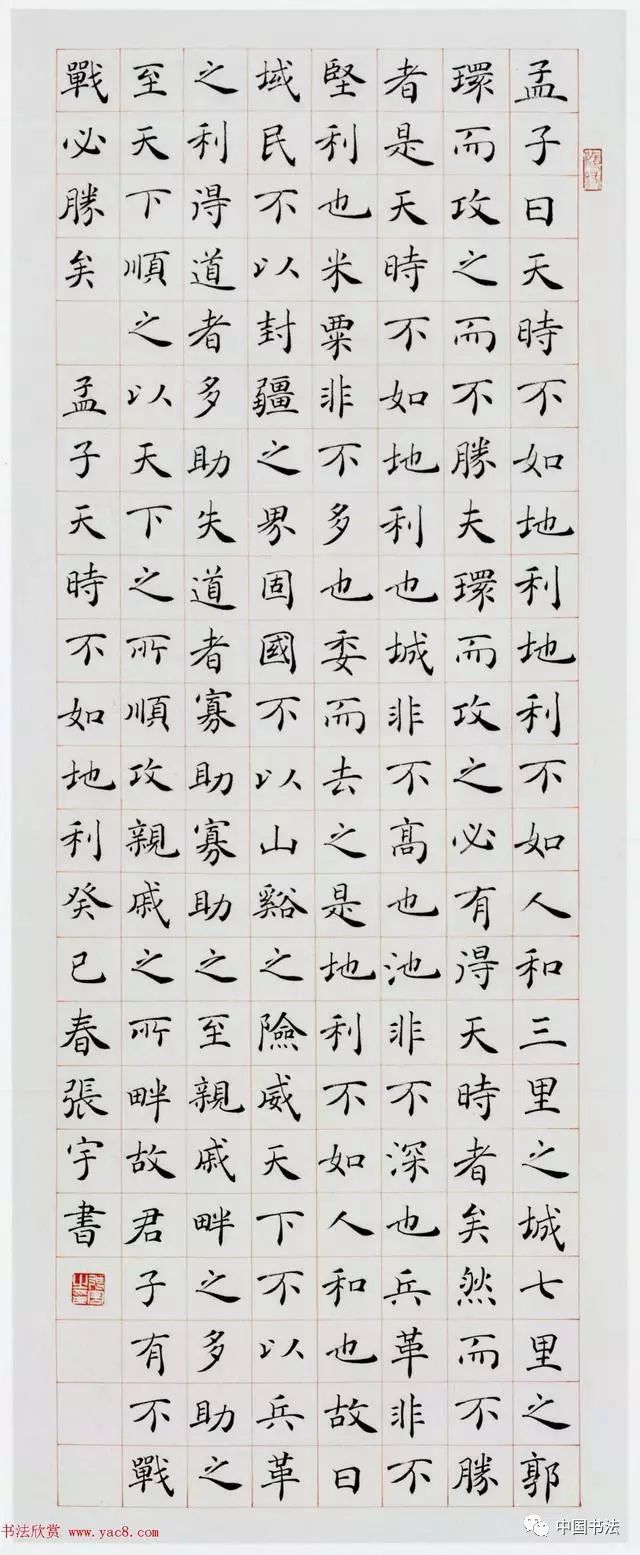 孟子曰天時不如地利地利不如人和三里之城七里之郭
環而攻之而不勝夫環而攻之必有得天時者矣然而不勝
者是天時不如地利也城非不高也池非不深也兵革非不
堅利也米粟非不多也委而去之是地利不如人和也故曰
域民不以封疆之界固國不以山谿之險威天下不以兵革
之利得道者多助失道者寡助寡助之至親戚畔之多助之
至天下順之以天下之所順攻親戚之所畔故君子有不戰
戰必勝矣 孟子天時不如地利癸巳春張宇書
书法欣赏 www.yac8.com
中国书法